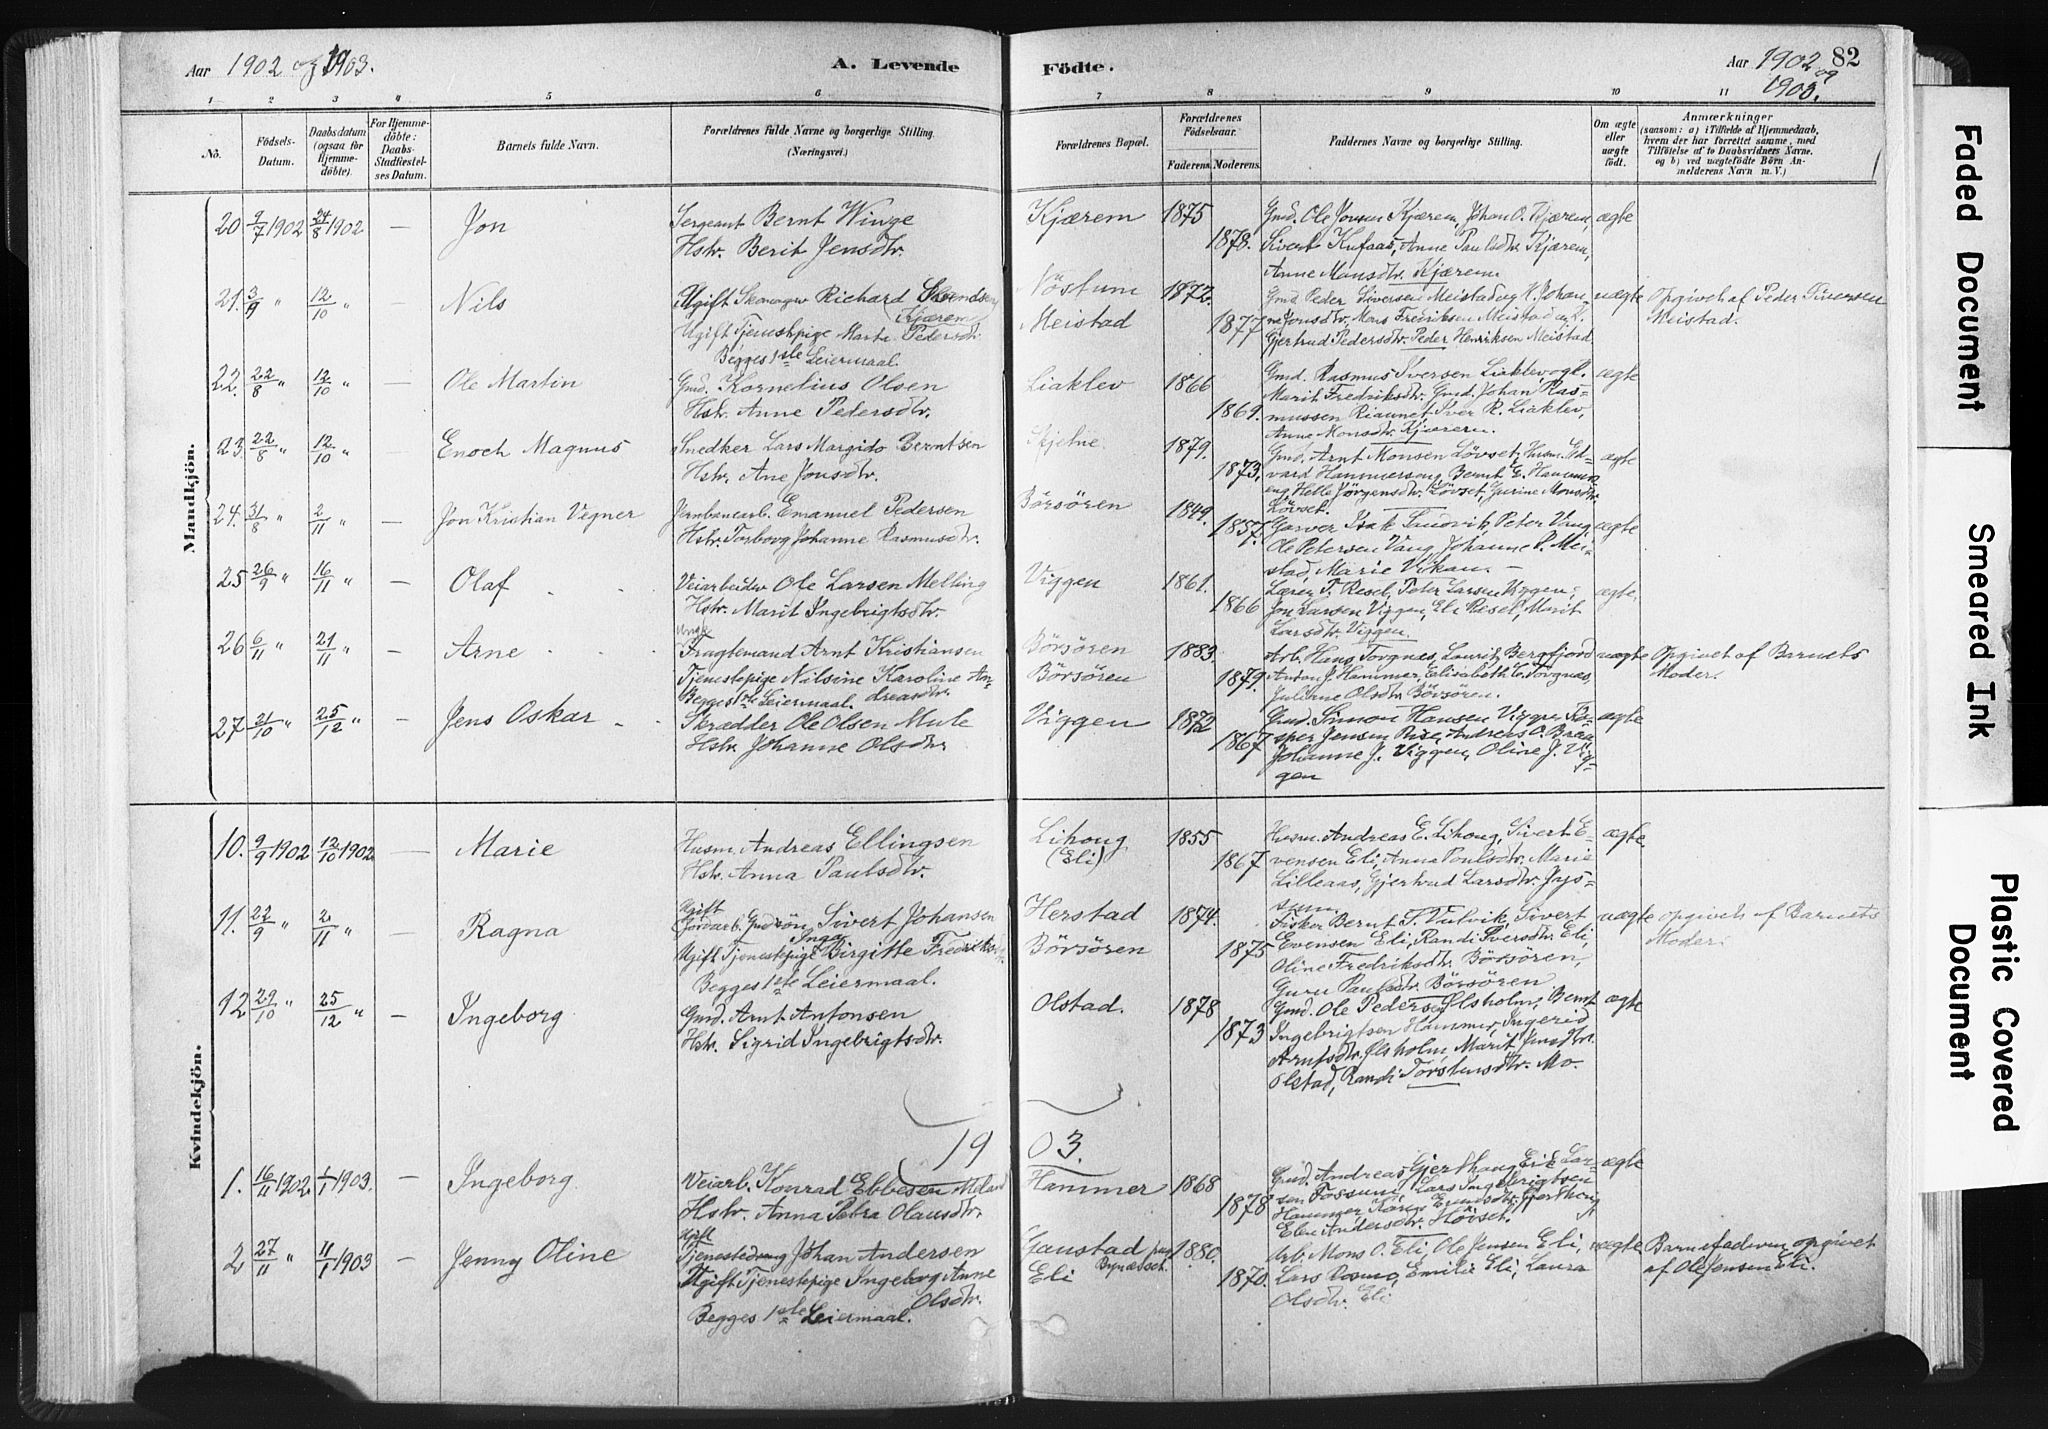 Aar 1902 og 1903.
A. Levende Födte.
Aar 1902 og 1903. 82
1 2 3 4 5 6 7 8 9 10 11
No.
Födsels-Datum.
Daabsdatum (ogsaa for Hjemmedöbte).
For Hjemmedöbte: Daabs-Stadfæstelses Datum.
Barnets fulde Navn.
Forældrenes fulde Navne og borgerlige Stilling. (Næringsvei.)
Forældrenes Bopæl.
Forældrenes Födselsaar.
Faderens. Moderens.
Faddernes Navne og borgerlige Stilling.
Om ægte eller uægte födt.
Anmærkninger
(saasom: a) i Tilfælde af Hjemmedaab, hvem der har forrettet samme, med Tilföielse af to Daabsvidners Navne, og b) ved uægtefödte Börn Anmelderens Navn m. V.)
Mandkjön.
20 9/7 1902 24/8 1902 — Jon
Sergeant Bernt Winge
Hstr. Berit Jensdtr.
Kjærem 1875 1878.
Gmd. Ole Jonsen Kjærem, Johan O. Kjærem,
Sivert Kufaas, Anne Paulsdtr. Kjærem,
Anne Monsdtr. Kjærem
ægte
21. 3/9 " 12/10 " — Nils
Ugift Richard Svendsen
(Kjærem)
Ugift Tjenestepige Marta Pedersdtr.
Begges 1ste Leiermaal
Nöstum 1872.
Meistad 1877
Gmd. Peder Siversen Meistad og K. Johanne
Jonsdtr., Mons Fredriksen Meistad
Gjertrud Pedersdtr. Peder Henriksen Meistad
uægte
Opgivet af Peder Siversen
Meistad.
22. 22/8 " 12/10 " — Ole Martin
Gmd. Kornelius Olsen
Hstr. Anne Pedersdtr.
Liaklev 1866 1869.
Gmd. Rasmus Iversen Liaklev og K.
Marit Fredriksdtr. Gmd. Johan Ras-
mussen Riaunet, Iver R. Liaklev,
Anne Monsdtr. Kjærem.
ægte
23. 22/8 " 12/10 " — Enoch Magnus
Snedker Lars Margido Berntsen
Hstr. Ane Jonsdtr.
Skjetne 1879. 1873.
Gmd. Arnt Monsen Lövset, Husm. Ed-
vard Hammerseng, Bernt E. Hammers
eng, Helle Jörgensdtr. Lövset, Gurine Monsdtr.
Lövset.
ægte
24. 31/8 " 2/11 " — Jon Kristian Vegner
Jernbanearb. Emanuel Pedersen
Hstr. Torborg Johanne Rasmusdtr.
Börsören 1849. 1857.
Garver Isak Sundvik, Peter Vang
Ole Petersen Vang, Johanne P. Mei-
stad, Marie Vikan. —
ægte
25 26/9 " 16/11 " — Olaf
Veiarbeider Ole Larsen Melling
Hstr. Marit Ingebrigtsdtr.
Viggen 1861. 1866
Lærer T. Resel, Peter Larsen Viggen,
Jon Larsen Viggen, Eli Resel, Marit
Larsdtr. Viggen.
ægte.
26 6/11 " 21/11 " — Arne
Ungk.
Fragtemand Arnt Kristiansen
Tjenestepige Nilsine Karoline An-
dreasdtr.
Begges 1ste Leiermaal.
Börsören 1883.
Börsören 1879.
Arb. Hans Torgnes, Laurits Bergfjord
Anton J. Hammer, Elisabeth E. Torgnes,
Juliane Olsdtr. Börsören.
uægte
Opgivet af Barnets
Moder.
27 21/10 " 25/12 " — Jens Oskar
Skrædder Ole Olsen Mule
Hstr. Johanne Olsdtr.
Viggen 1872 1867
Gmd. Simon Hansen Viggen, Kas-
sper Jensen Rise, Andreas O. Braa
Johanne J. Viggen, Oline J. Vig-
gen
ægte
Kvindekjön.
10. 9/9 1902 12/10 1902. — Marie
Husm. Andreas Ellingsen
Hstr. Anna Paulsdtr.
Lihoug (Eli) 1855 1867
Husm. Andreas E. Lihoug, Sivert E-
vensen Eli, Anna Paulsdtr. Marie
Lilleaas, Gjertrud Larsdtr. Jøs-
sum
ægte
11. 22/9 " 2/11 " — Ragna
Ugift
Jordarb. Gmdsön Sivert Johansen
Inga
Ugift Tjenestepige Birgitte Fredriksdtr.
Begges 1ste Leiermaal.
Herstad 1874.
Börsören 1875
Fisker Bernt T. Vulvik, Sivert
Evensen Eli, Randi Iversdtr. Eli,
Oline Fredriksdtr. Börsören,
Guru Paulsdtr. Börsören
uægte
opgivet af Barnets
Moder.
12 29/10 " 25/12 " — Ingeborg
Gmd. Arnt Antonsen
Hstr. Sigrid Ingebrigtsdtr.
Olstad. 1878 1873
Gmd. Ole Pedersen Ölsholm, Bernt
Ingebrigtsen Hammer, Ingerid
Arntsdtr. Ölsholm, Marit Jonsdtr.
Olstad, Randi Torstensdtr. Mo.
ægte
1903.
1. 16/11 1902 1/1 1903. — Ingeborg
Veiarb. Konrad Ebbesen Meland
Hstr. Anna Petra Olausdtr.
Hammer 1868 1878
Gmd. Andreas Gjerthaug, Erik Lar-
sen Fossum, Lars Ingebrigtsen
Hammer, Karen Gjerthaug
Elen Andersdtr. Hövset.
ægte
2 27/11 " 11/1 1903 — Jenny Oline
Ugift
Tjenestedreng Johan Andersen
Ugift Tjenestepige Ingeborg Anne
Olsdtr.
Begges 1ste Leiermaal.
Gaustad Bynæsset. 1880.
Eli 1870.
Arb. Mons O. Eli, Ole Jensen Eli,
Lars Rosmo, Emilie Eli, Laura
Olsdtr. Eli
uægte
Barnefaderen opgivet
af Ole Jensen Eli.
Faded Document
Smeared Ink
Plastic Covered
Document